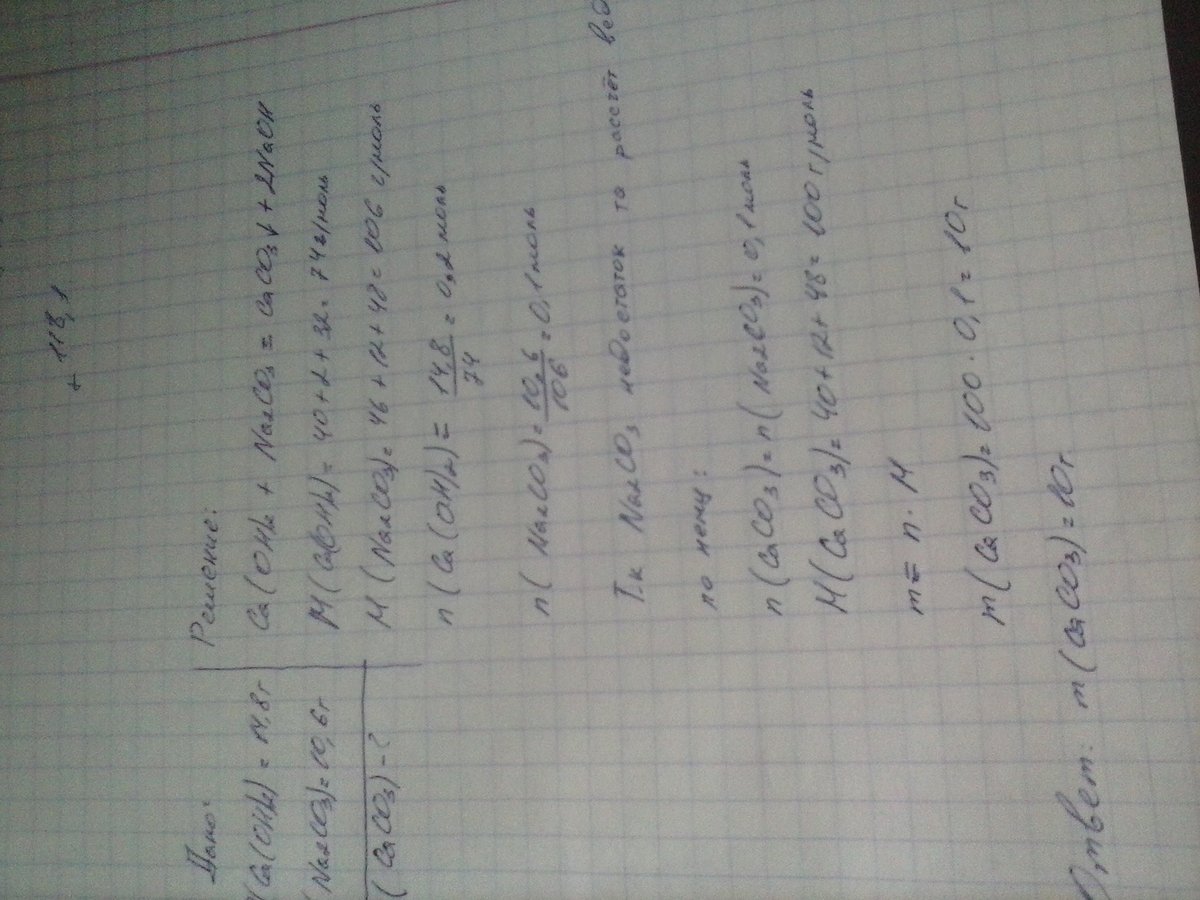 + 118,1
Дано:
(Ca(OH)2) = 14,8г
(Na2CO3) = 10,6г
(CaCO3) - ?
Решение:
Ca(OH)2 + Na2CO3 = CaCO3↓ + 2NaOH
M(Ca(OH)2) = 40+2+32 = 74г/моль
M(Na2CO3) = 46+12+48 = 106 г/моль
n(Ca(OH)2) = 14,8/74 = 0,2 моль
n(Na2CO3) = 10,6/106 = 0,1 моль
Т.к Na2CO3 недостаток то рассчёт вед
по нему:
n(CaCO3) = n(Na2CO3) = 0,1 моль
M(CaCO3) = 40+12+48 = 100 г/моль
m = n · M
m(CaCO3) = 100 · 0,1 = 10г
Ответ: m(CaCO3) = 10г